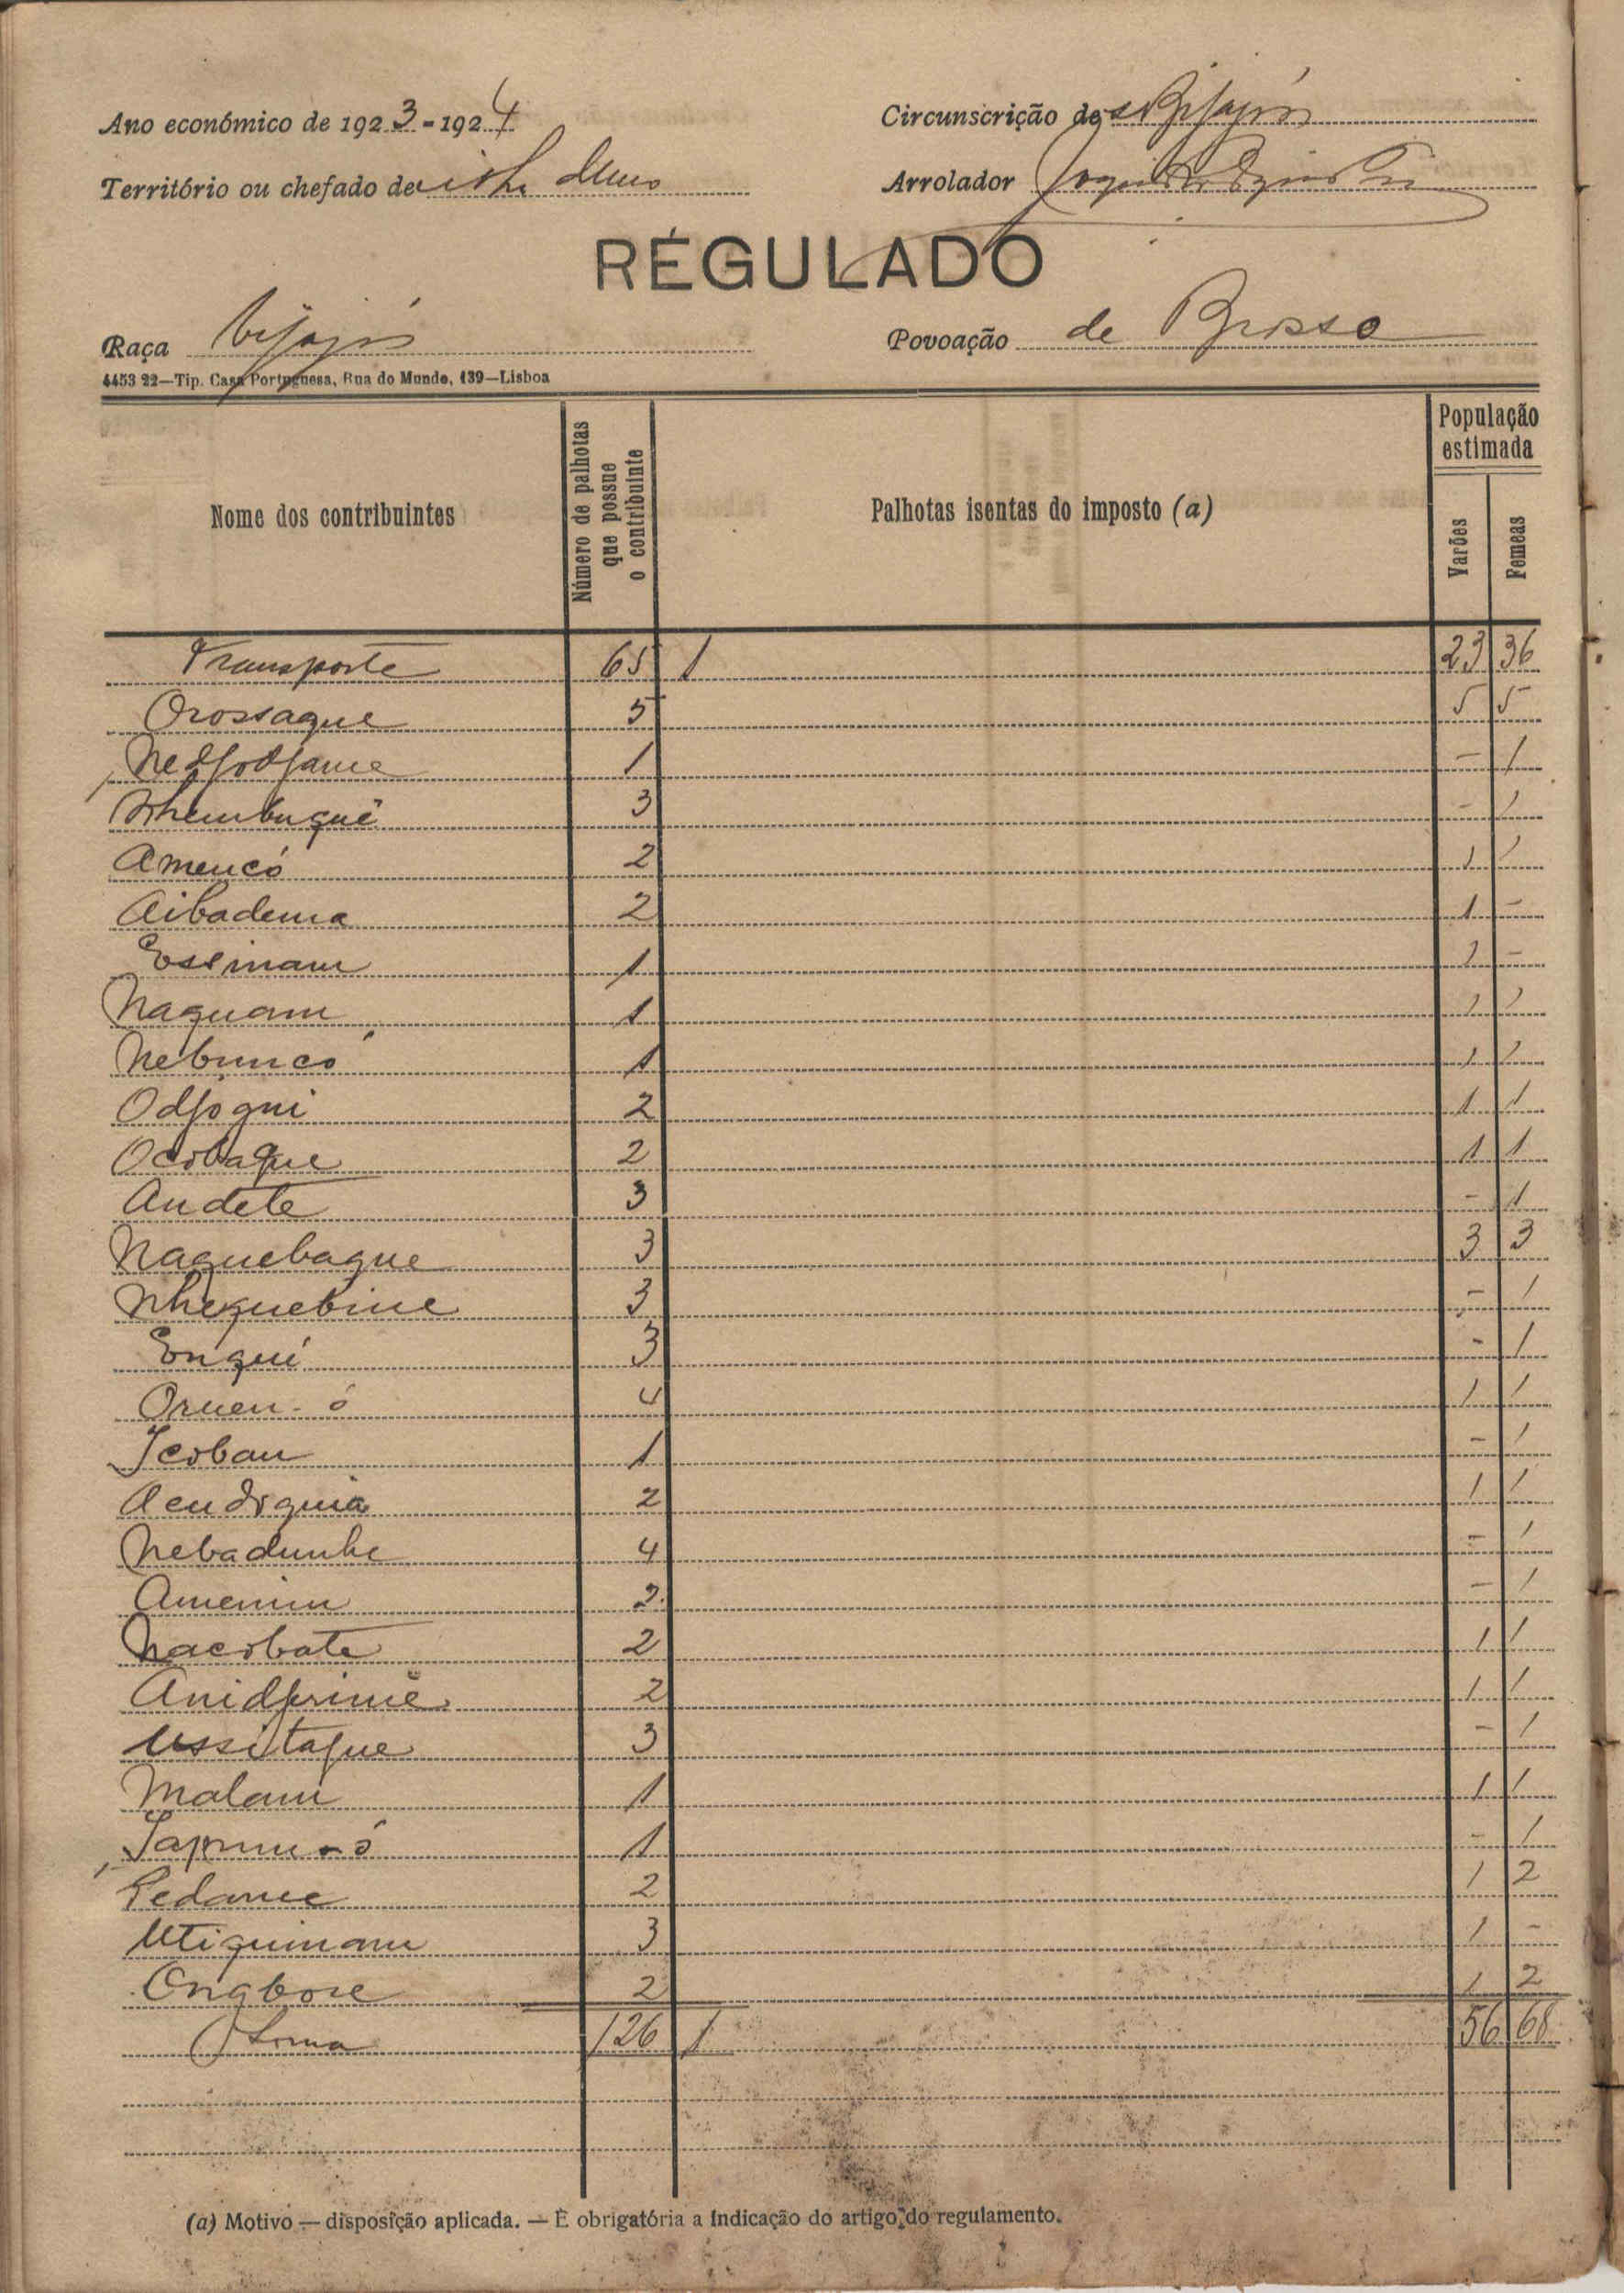 Ano económico de 1923-1924
Circunscrição de Bijagós
Território ou chefado de
Arrolador
RÉGULADO
Raça bijagós
Povoação de Brosso
4453 22—Tip. Casa Portuguesa, Rua do Mundo, 139—Lisboa
Nome dos contribuintes
Número de palhotas que possue o contribuinte
Palhotas isentas do imposto (a)
População estimada
Varões
Femeas
Transporte 65 1 23 36
Orossaque 5 5 5
Nedjodjame 1 - 1
Nhembuquê 3 - 1
Amencó 2 1 1
Aibadema 2 1 -
Essinam 1 1 -
Naquam 1 1 1
Nebuncó 1 1 1
Odjogui 2 1 1
Ocobaque 2 1 1
Andete 3 - 1
Naquebaque 3 3 3
Nhequebine 3 - 1
Enqui 3 - 1
Oruen-ó 4 1 1
Icoban 1 - 1
Acudoquia 2 1 1
Nebadunhe 4 - 1
Amenim 2 - 1
Nacobate 2 1 1
Anidjrimê 2 1 1
Ussitaque 3 - 1
Malam 1 1 1
1 - 1
Pedame 2 1 2
Utiquinam 3 1 -
Ongbone 2 1 2
Soma 126 1 56 68
(a) Motivo — disposição aplicada. — É obrigatória a indicação do artigo do regulamento.